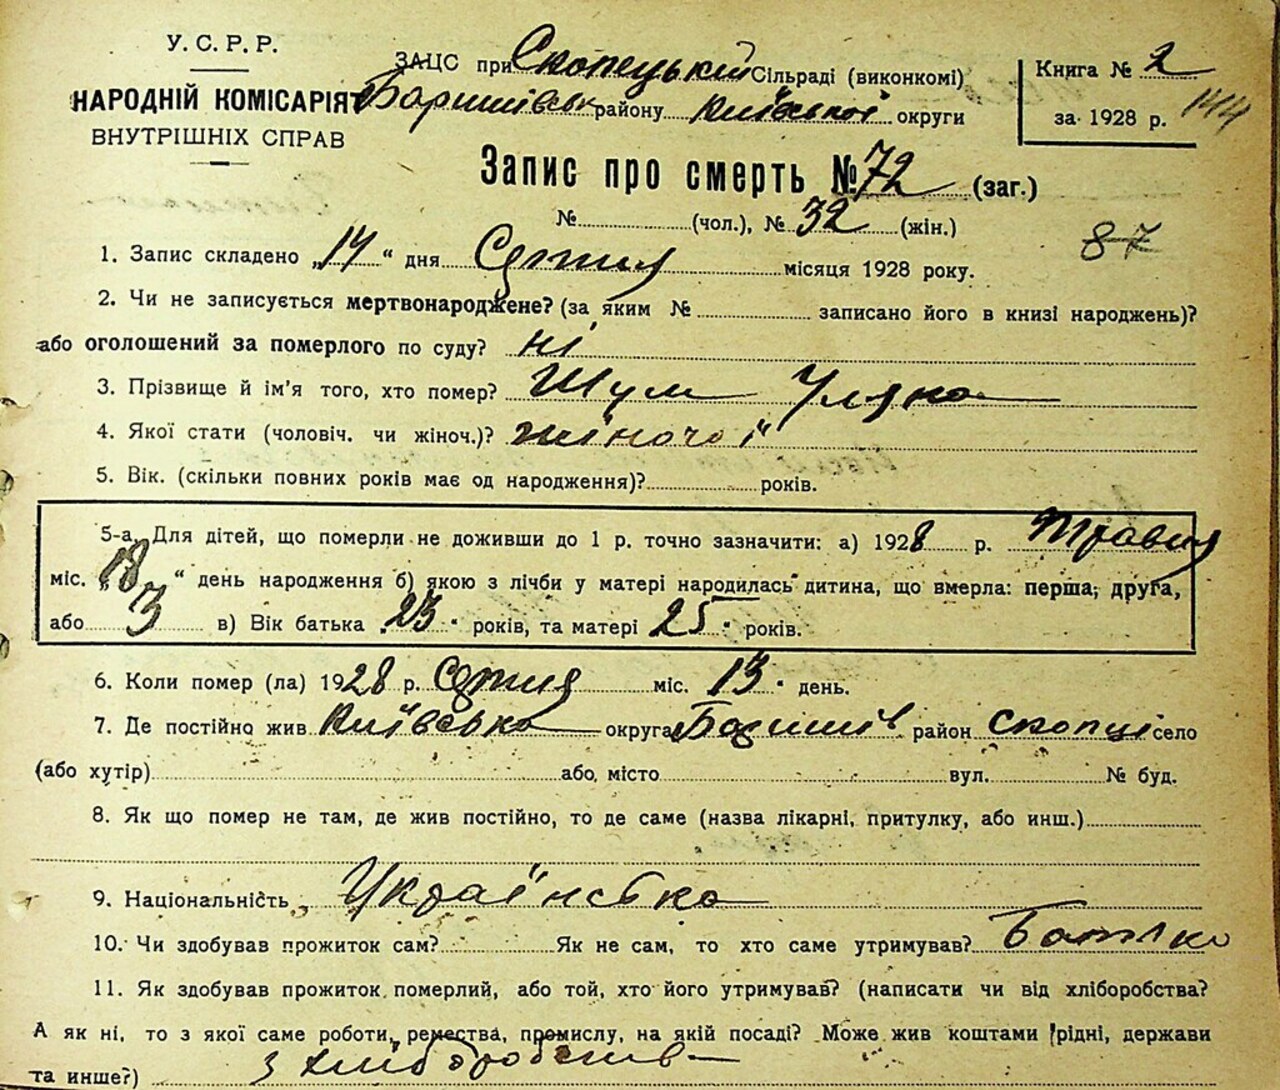 У. С. Р. Р.
НАРОДНІЙ КОМІСАРІЯТ
ВНУТРІШНІХ СПРАВ
ЗАЦС при Скопецькій Сільраді (виконкомі)
Баришівськ району Київської округи
Книга № 2
за 1928 р. 144
Запис про смерть № 72 (заг.)
№ (чол.), № 32 (жін.)
87
1. Запис складено „14" дня Серпня місяця 1928 року.
2. Чи не записується мертвонароджене? (за яким № записано його в книзі народжень)?
або оголошений за померлого по суду? ні
3. Прізвище й ім'я того, хто помер? Шум Уляна
4. Якої стати (чоловіч. чи жіноч.)? жіночої
5. Вік. (скільки повних років має од народження)? років.
5-а. Для дітей, що померли не доживши до 1 р. точно зазначити: а) 1928 р. Травня
міс. „18" день народження б) якою з лічби у матері народилась дитина, що вмерла: перша, друга,
або 3 в) Вік батька 23 років, та матері 25 років.
6. Коли помер (ла) 1928 р. Серпня міс. 13 день.
7. Де постійно жив Київська округа Баришів район Скопці село
(або хутір) або місто вул. № буд.
8. Як що помер не там, де жив постійно, то де саме (назва лікарні, притулку, або инш.)
9. Національність Українська
10. Чи здобував прожиток сам? Як не сам, то хто саме утримував? Батько
11. Як здобував прожиток померлий, або той, хто його утримував? (написати чи від хліборобства?
А як ні, то з якої саме роботи, ремества, промислу, на якій посаді? Може жив коштами рідні, держави
та инше?) з хліборобства